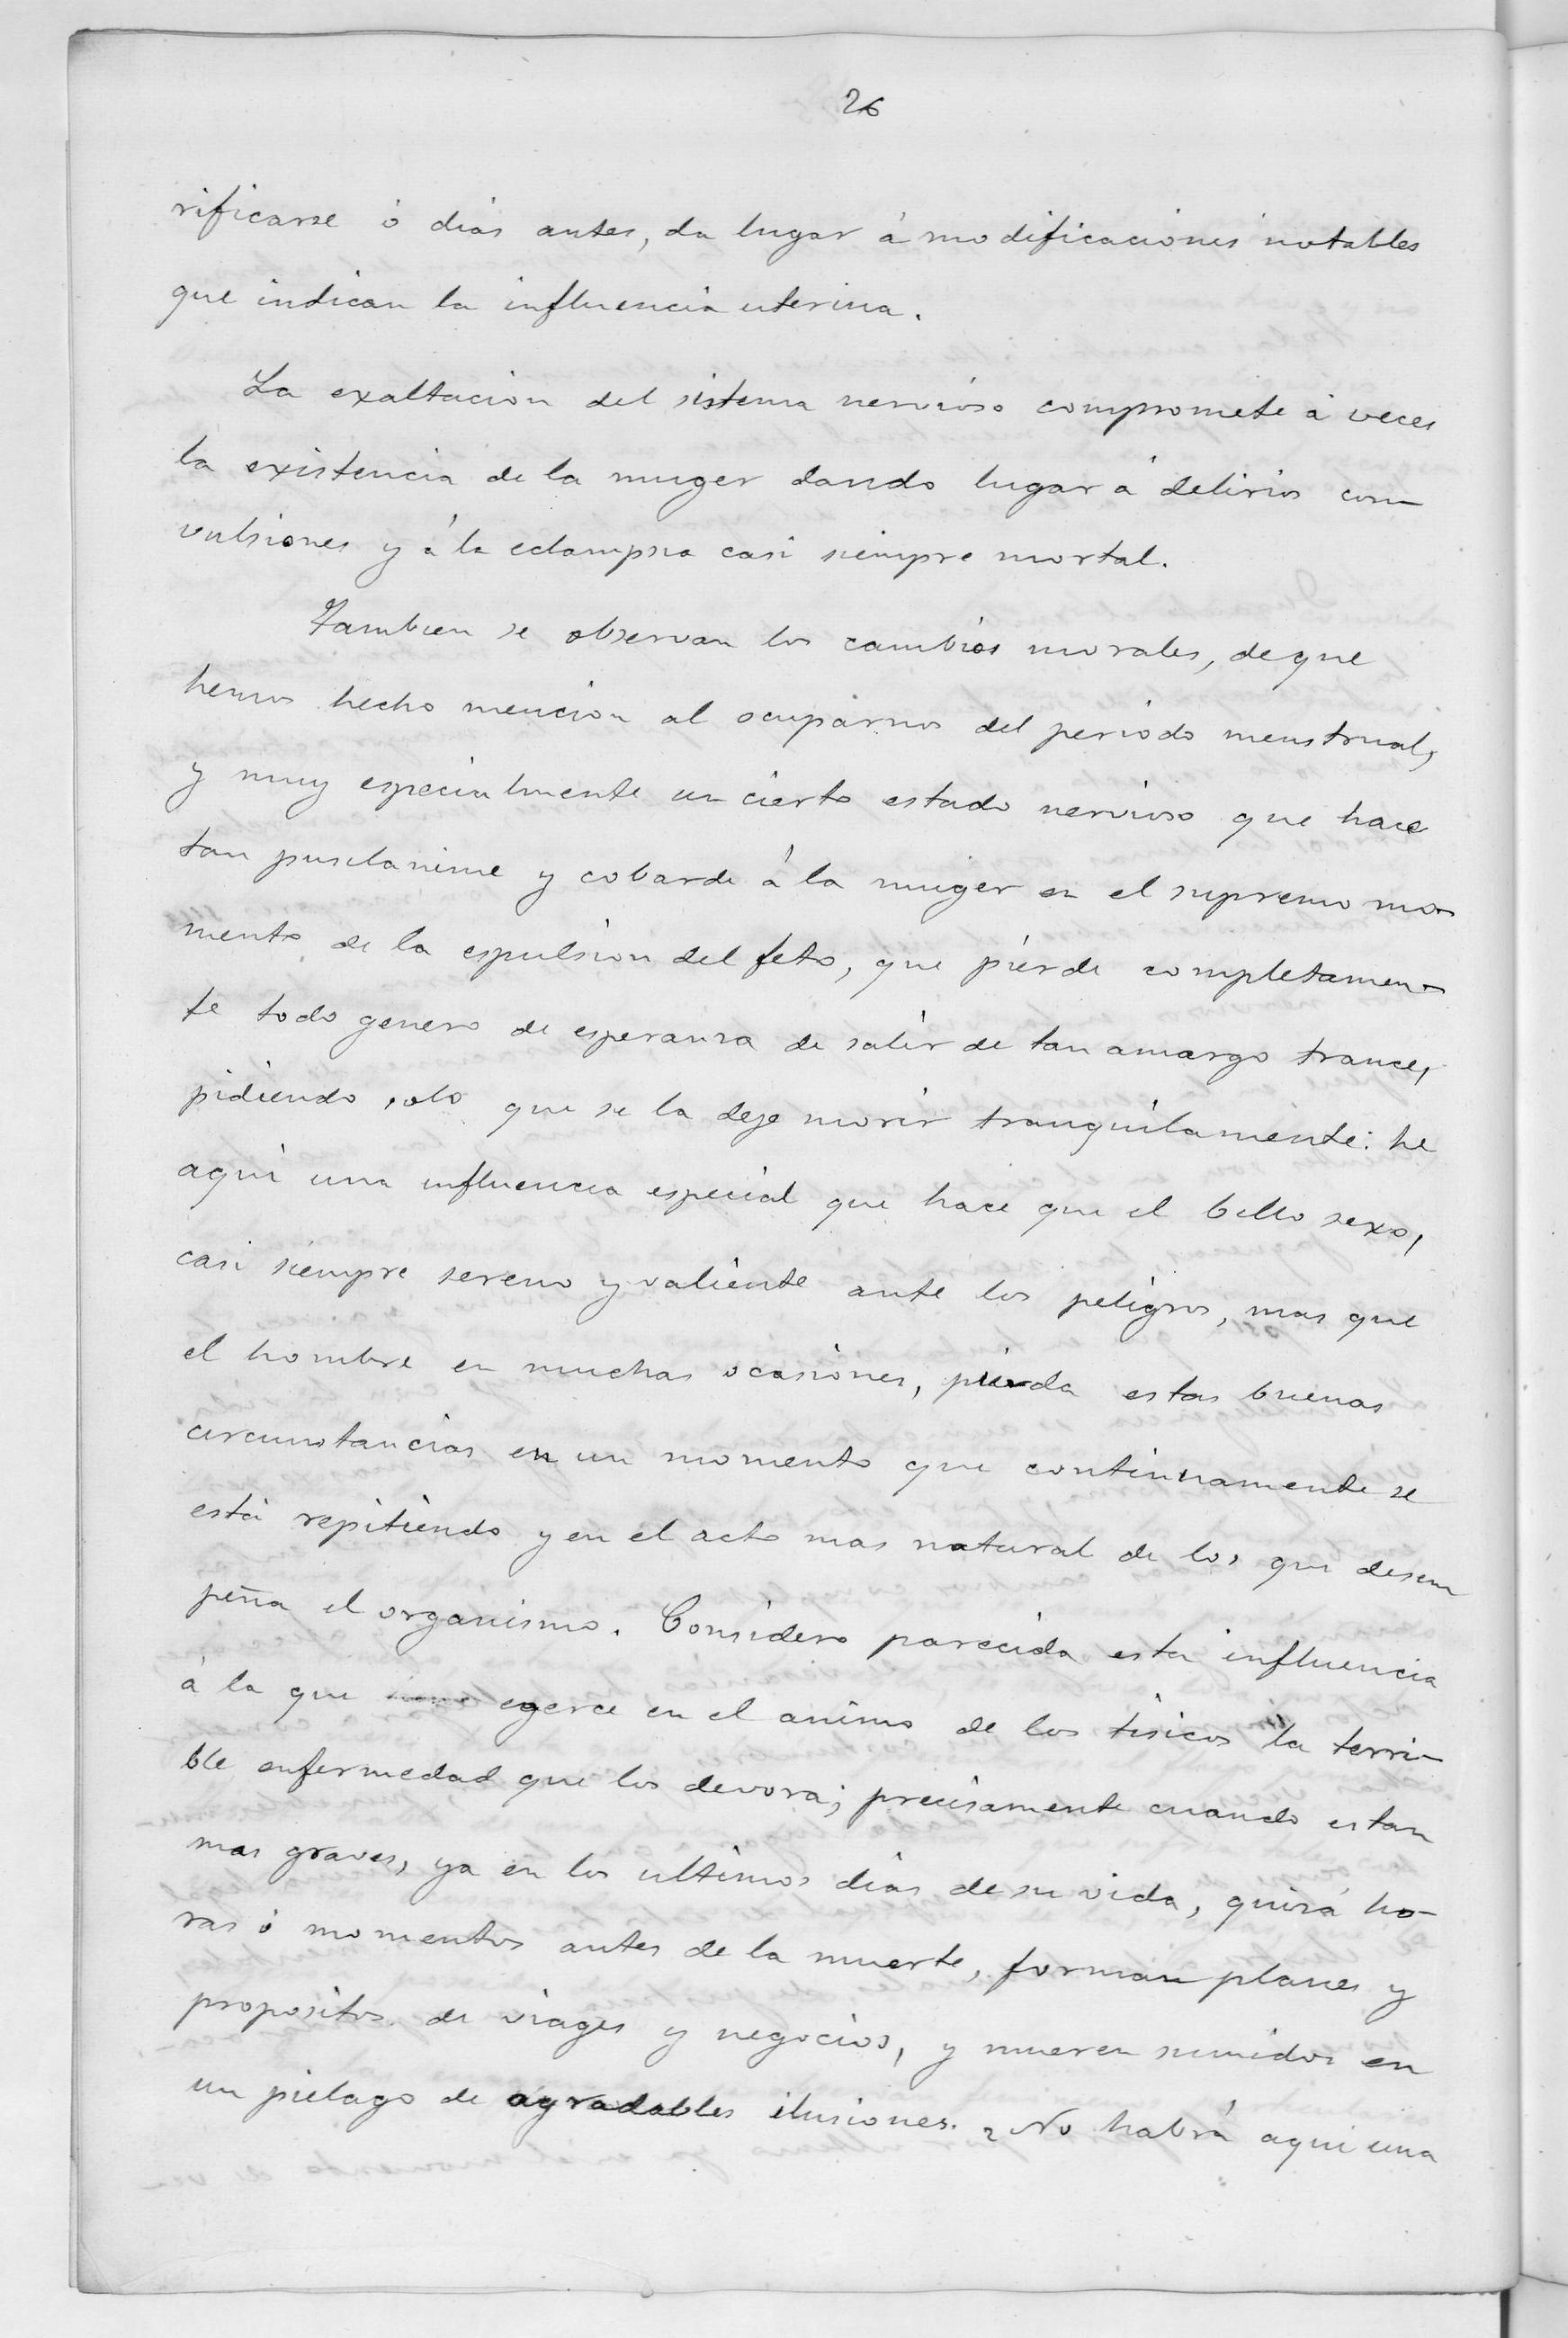 26
rificarse ó dias antes, da lugar á modificaciones notables
que indican la influencia uterina.
La exaltacion del sistema nervioso compromete á veces
la existencia de la muger dando lugar á delirios con-
vulsiones y á la eclampsia casi siempre mortal.
Tambien se observan los cambios morales, de que
hemos hecho mencion al ocuparnos del periodo menstrual,
y muy especialmente un cierto estado nervioso que hace
tan pusilanime y cobarde á la muger en el supremo mo-
mento de la espulsion del feto, que pierde completamen-
te todo genero de esperanza de salir de tan amargo trance,
pidiendo solo que se la deje morir tranquilamente: he
aqui una influencia especial que hace que el bello sexo,
casi siempre sereno y valiente ante los peligros, mas que
el hombre en muchas ocasiones, pierda estas buenas
circunstancias en un momento que continuamente se
está repitiendo y en el acto mas natural de los que desem
peña el organismo. Considero parecida esta influencia
á la que egerce en el animo de los tisicos la terri-
ble enfermedad que los devora; precisamente cuando estan
mas graves, ya en los ultimos dias de su vida, quizá ho-
ras ó momentos antes de la muerte, forman planes y
propositos de viages y negocios, y mueren sumidos en
un pielago de agradables ilusiones. ¿No habrá aqui una